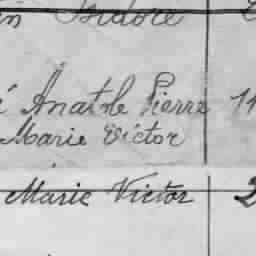 in Isidore
é Anatole Pierre 11
Marie Victor
Marie Victor 2